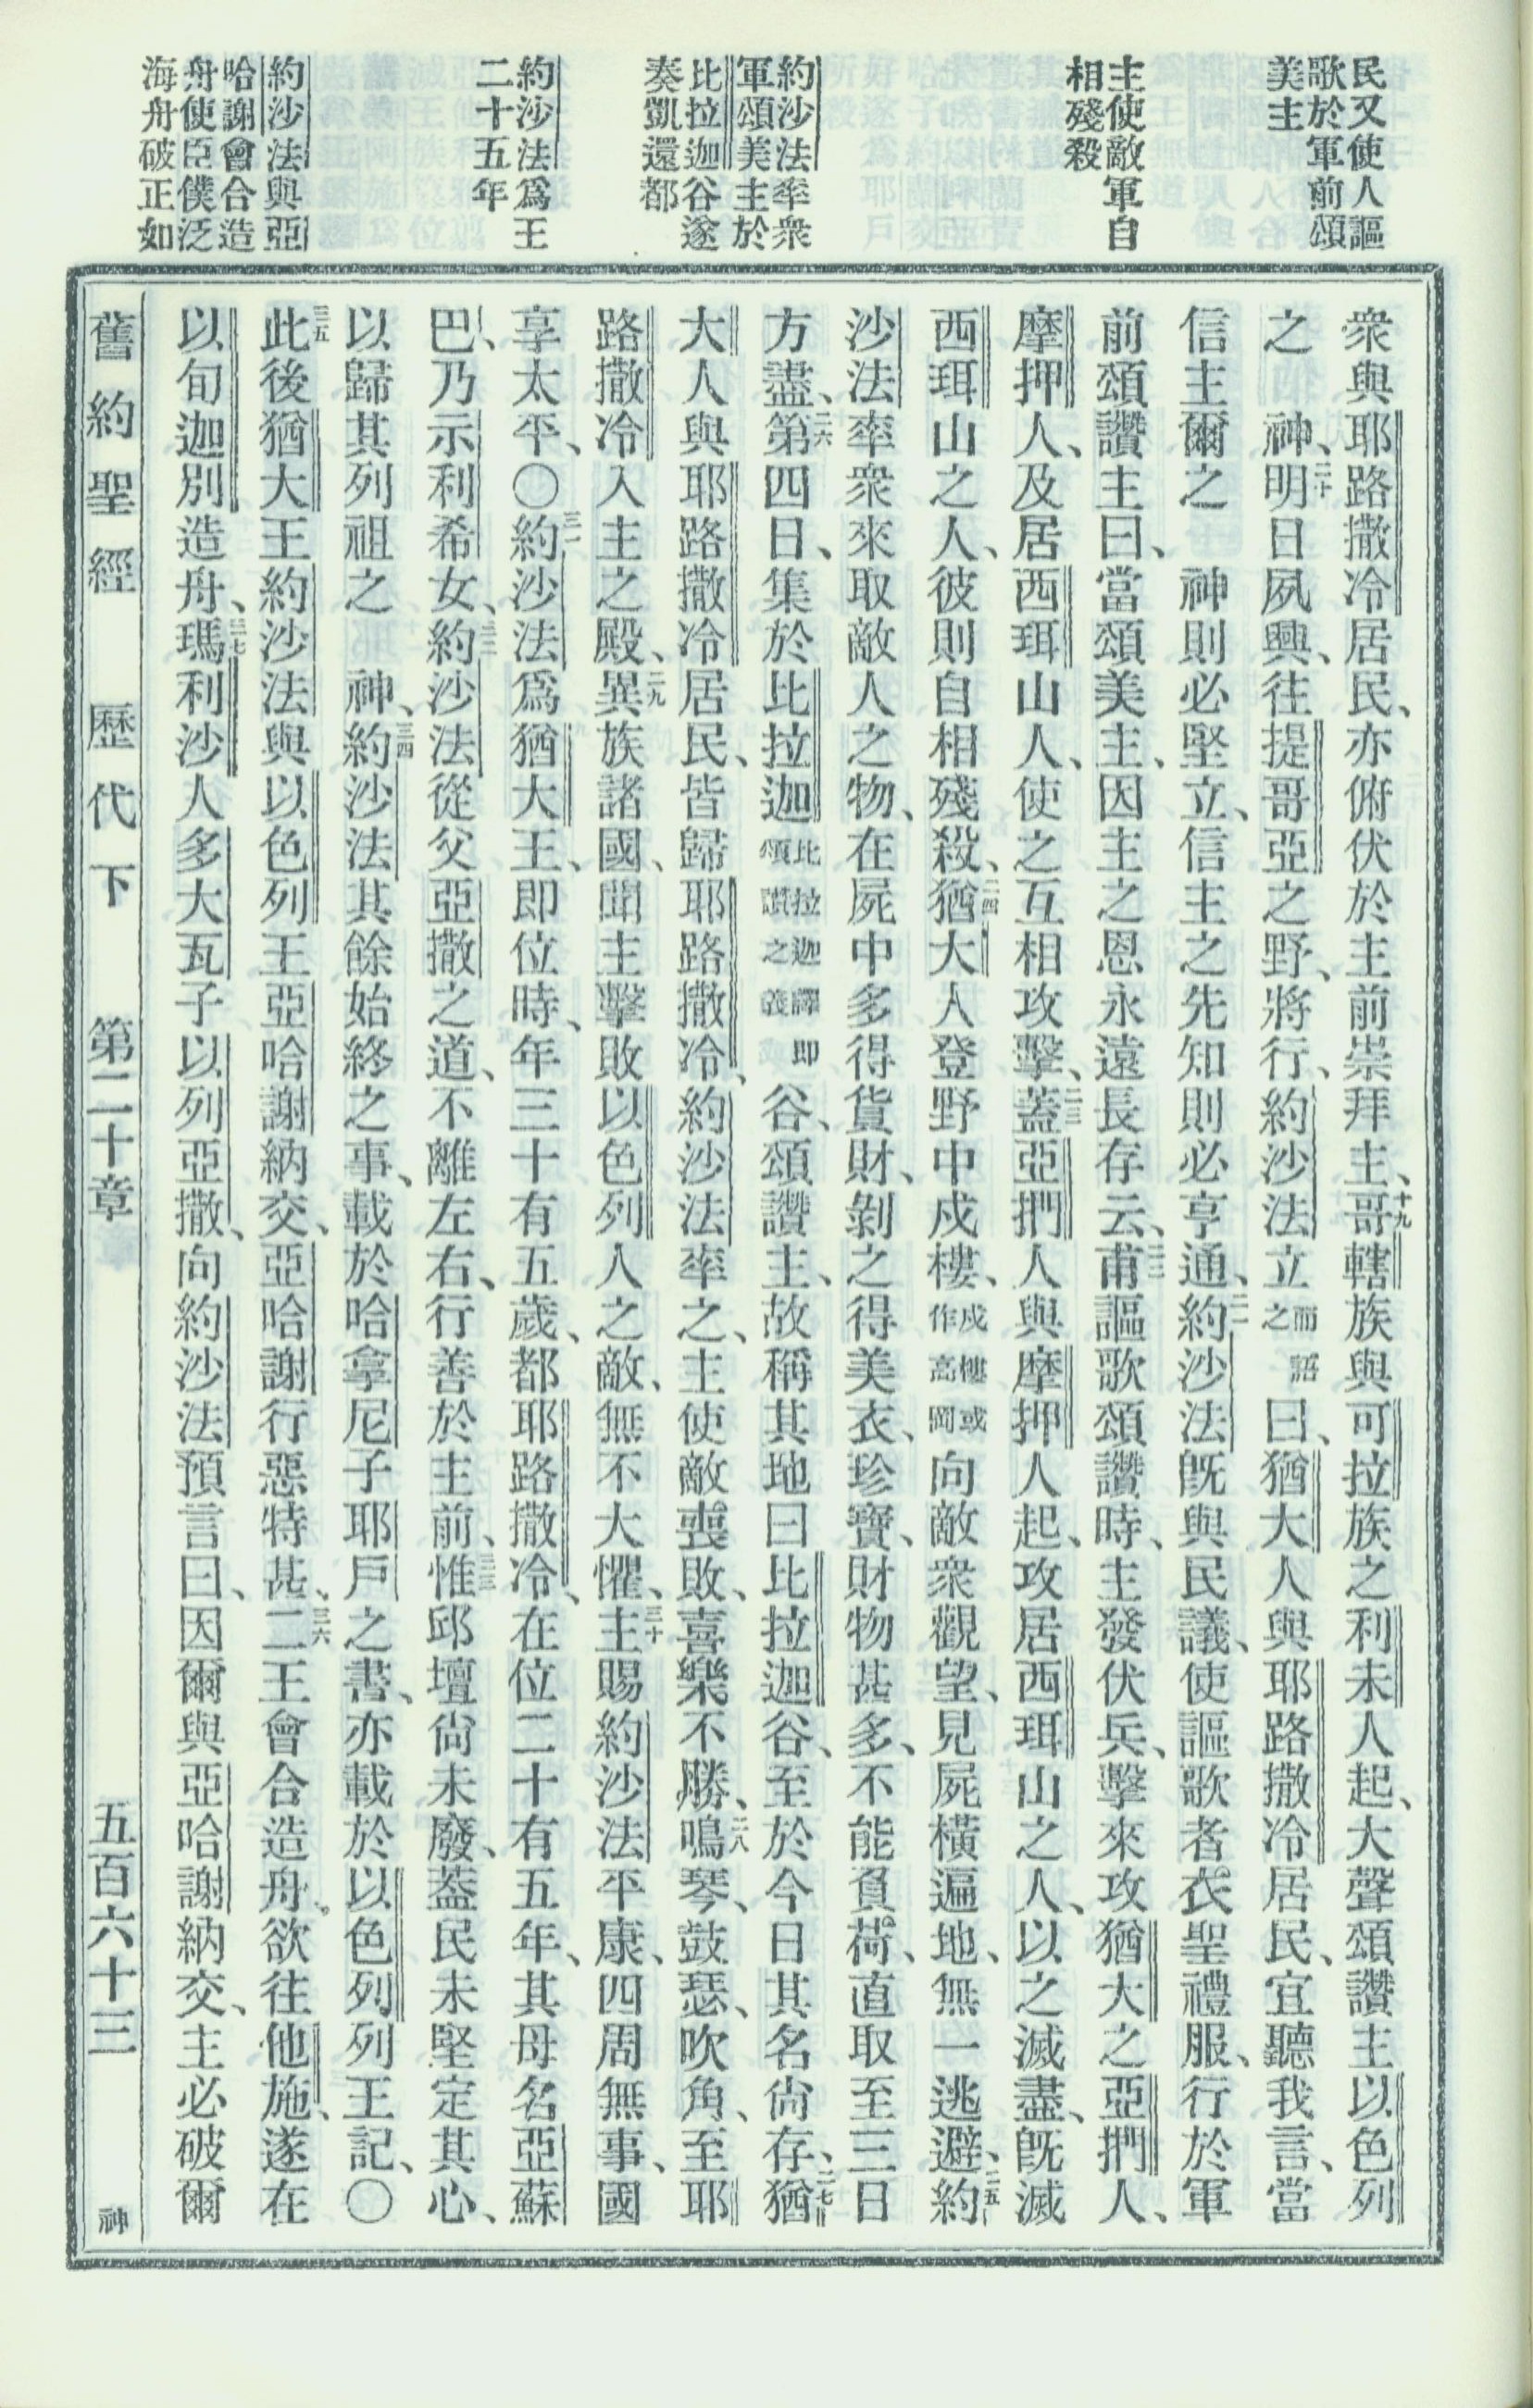 民又使人謳
歌於軍前頌
美主
主使敵軍自
相殘殺
約沙法率衆
軍頌美主於
比拉迦谷遂
奏凱還都
約沙法爲王
二十五年
約沙法與亞
哈謝會合造
舟使臣僕泛
海舟破正如
衆與耶路撒冷居民、亦俯伏於主前崇拜主、十九哥轄族與可拉族之利未人起、大聲頌讚主以色列
之　神、二十明日夙興、往提哥亞之野、將行、約沙法立而語之曰、猶大人與耶路撒冷居民、宜聽我言、當
信主爾之　神則必堅立、信主之先知則必亨通、二一約沙法旣與民議、使謳歌者衣聖禮服、行於軍
前頌讚主曰、當頌美主、因主之恩永遠長存云、二二甫謳歌頌讚時、主發伏兵、擊來攻猶大之亞捫人、
摩押人、及居西珥山人、使之互相攻擊、二三蓋亞捫人與摩押人起、攻居西珥山之人、以之滅盡、旣滅
西珥山之人、彼則自相殘殺、二四猶大人登野中戍樓、戍樓或作高岡向敵衆觀望、見屍橫遍地、無一逃避、二五約
沙法率衆來取敵人之物、在屍中多得貨財、剝之得美衣、珍寶、財物甚多、不能負荷、直取至三日
方盡、二六第四日、集於比拉迦比拉迦譯即頌讚之義谷、頌讚主、故稱其地曰比拉迦谷、至於今日其名尙存、二七猶
大人與耶路撒冷居民、皆歸耶路撒冷、約沙法率之、主使敵喪敗、喜樂不勝、二八鳴琴、鼓瑟、吹角、至耶
路撒冷入主之殿、二九異族諸國、聞主擊敗以色列人之敵、無不大懼、三十主賜約沙法平康、四周無事、國
享太平、〇三一約沙法爲猶大王、即位時、年三十有五歲、都耶路撒冷、在位二十有五年、其母名亞蘇
巴、乃示利希女、三二約沙法從父亞撒之道、不離左右、行善於主前、三三惟邱壇尙未廢、蓋民未堅定其心、
以歸其列祖之　神、三四約沙法其餘始終之事、載於哈拿尼子耶戶之書、亦載於以色列列王記、〇
三五此後猶大王約沙法與以色列王亞哈謝納交、亞哈謝行惡特甚、三六二王會合造舟、欲往他施、遂在
以旬迦別造舟、三七瑪利沙人多大瓦子以列亞撒、向約沙法預言曰、因爾與亞哈謝納交、主必破爾
舊約聖經　歷代下　第二十章　五百六十三　神